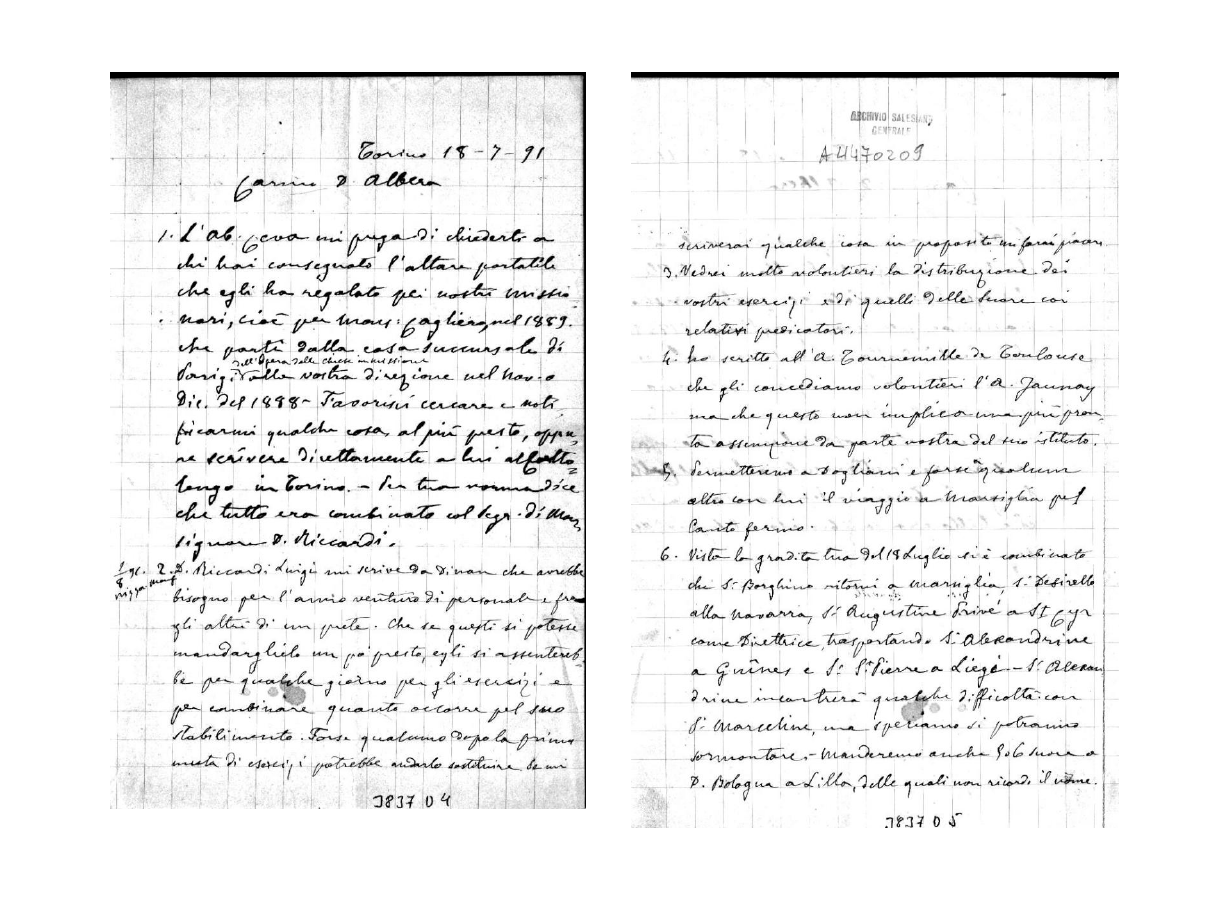 Torino 18-7-91
Carmo D. Albera
1. L'Ab. Ceva mi prega di chiederti a
chi hai consegnato l'altare portatile
che egli ha regalato pei nostri missio
nari, cioè per Mons: Cagliero, nel 1889.
che partì dalla casa succursale di
dell'Opera delle chiese in missione
Parigi alla vostra direzione nel Nov. o
Dic. del 1888 - Favorisci cercare e noti
ficarmi qualche cosa al più presto, oppu
re scrivere direttamente a lui al Cotto
lengo in Torino. - Per tua norma dice
che tutto era combinato col Segr. di Mon
signore D. Riccardi.
2. D. Riccardi Luigi mi scrive da Dinan che avrebbe
bisogno per l'anno venturo di personale e fra
gli altri di un prete. Che se questi si potesse
mandarglielo un pò presto, egli si assentereb
be per qualche giorno per gli esercizi e
per combinare quanto occorre pel suo
stabilimento. Forse qualcuno dopo la prima
muta di esercizi potrebbe andarlo sostituire. Se mi
383704
ARCHIVIO SALESIANO
GENERALE
A4470209
scriverai qualche cosa in proposito mi farai piacere
3. Vedrei molto volontieri la distribuzione dei
vostri esercizi e di quelli delle Suore coi
relativi predicatori.
4. Ho scritto all'A. Tournemille de Toulouse
che gli concediamo volontieri l'A. Jaunay
ma che questo non implica una più pron
ta assunzione da parte nostra del suo istituto.
5. Permetteremo a Dogliani e forse a qualcun
altro con lui il viaggio a Marsiglia pel
Canto fermo.
6. Vista la gradita tua del 18 Luglio si è combinato
che Sr Borghino ritorni a Marsiglia, Sr Desirello
alla Navarra, Sr Augustine Privé a St Cyr
come Direttrice, trasportando Sr Alexandrine
a Guînes e Sr St Pierre a Liegè - Sr Alexan
drine incontrerà qualche difficoltà con
Sr Marceline, ma speriamo si potranno
sormontare. - Manderemo anche 5 o 6 suore a
D. Bologna a Lilla, delle quali non ricordi il nome.
383705